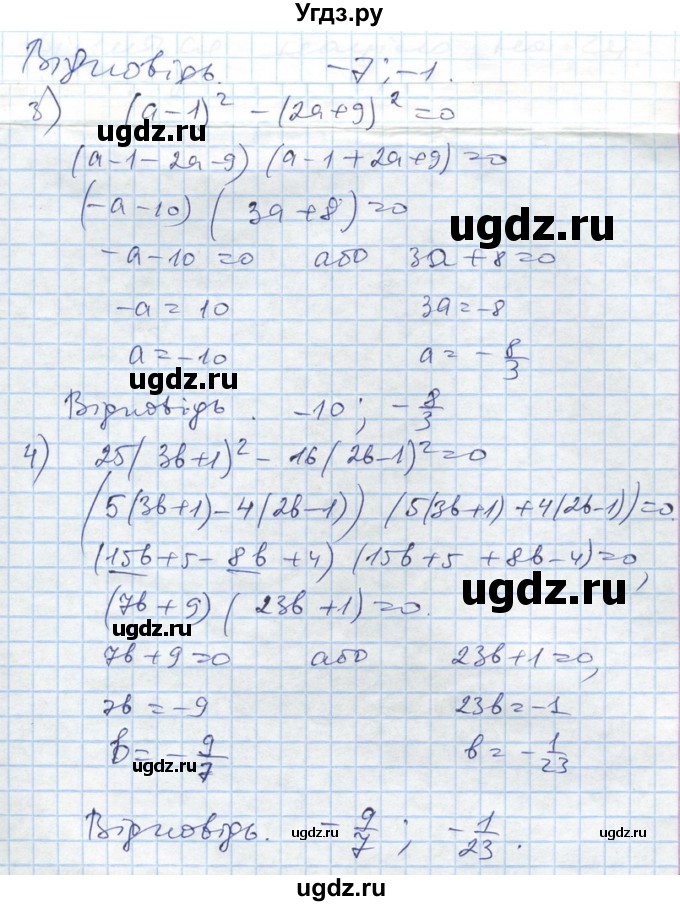 Угдз.ру
Відповідь. -7; -1.
3) (a-1)² - (2a+9)² = 0
ugdz.ru
(a-1-2a-9) (a-1+2a+9) = 0
(-a-10) (3a+8) = 0
ugdz.ru
-a-10 = 0 або 3a+8=0
-a = 10 3a=-8
a = -10 a = -8/3
ugdz.ru
Відповідь. -10; -8/3
4) 25(3b+1)² - 16(2b-1)² = 0
ugdz.ru
(5(3b+1)-4(2b-1)) (5(3b+1)+4(2b-1))=0.
(15b+5-8b+4) (15b+5+8b-4)=0,
ugdz.ru
(7b+9) (23b+1)=0.
ugdz.ru
7b+9=0 або 23b+1=0,
7b = -9 23b=-1
b = -9/7 b = -1/23
ugdz.ru
Відповідь. -9/7; -1/23.
ugdz.ru ugdz.ru
ugdz.ru